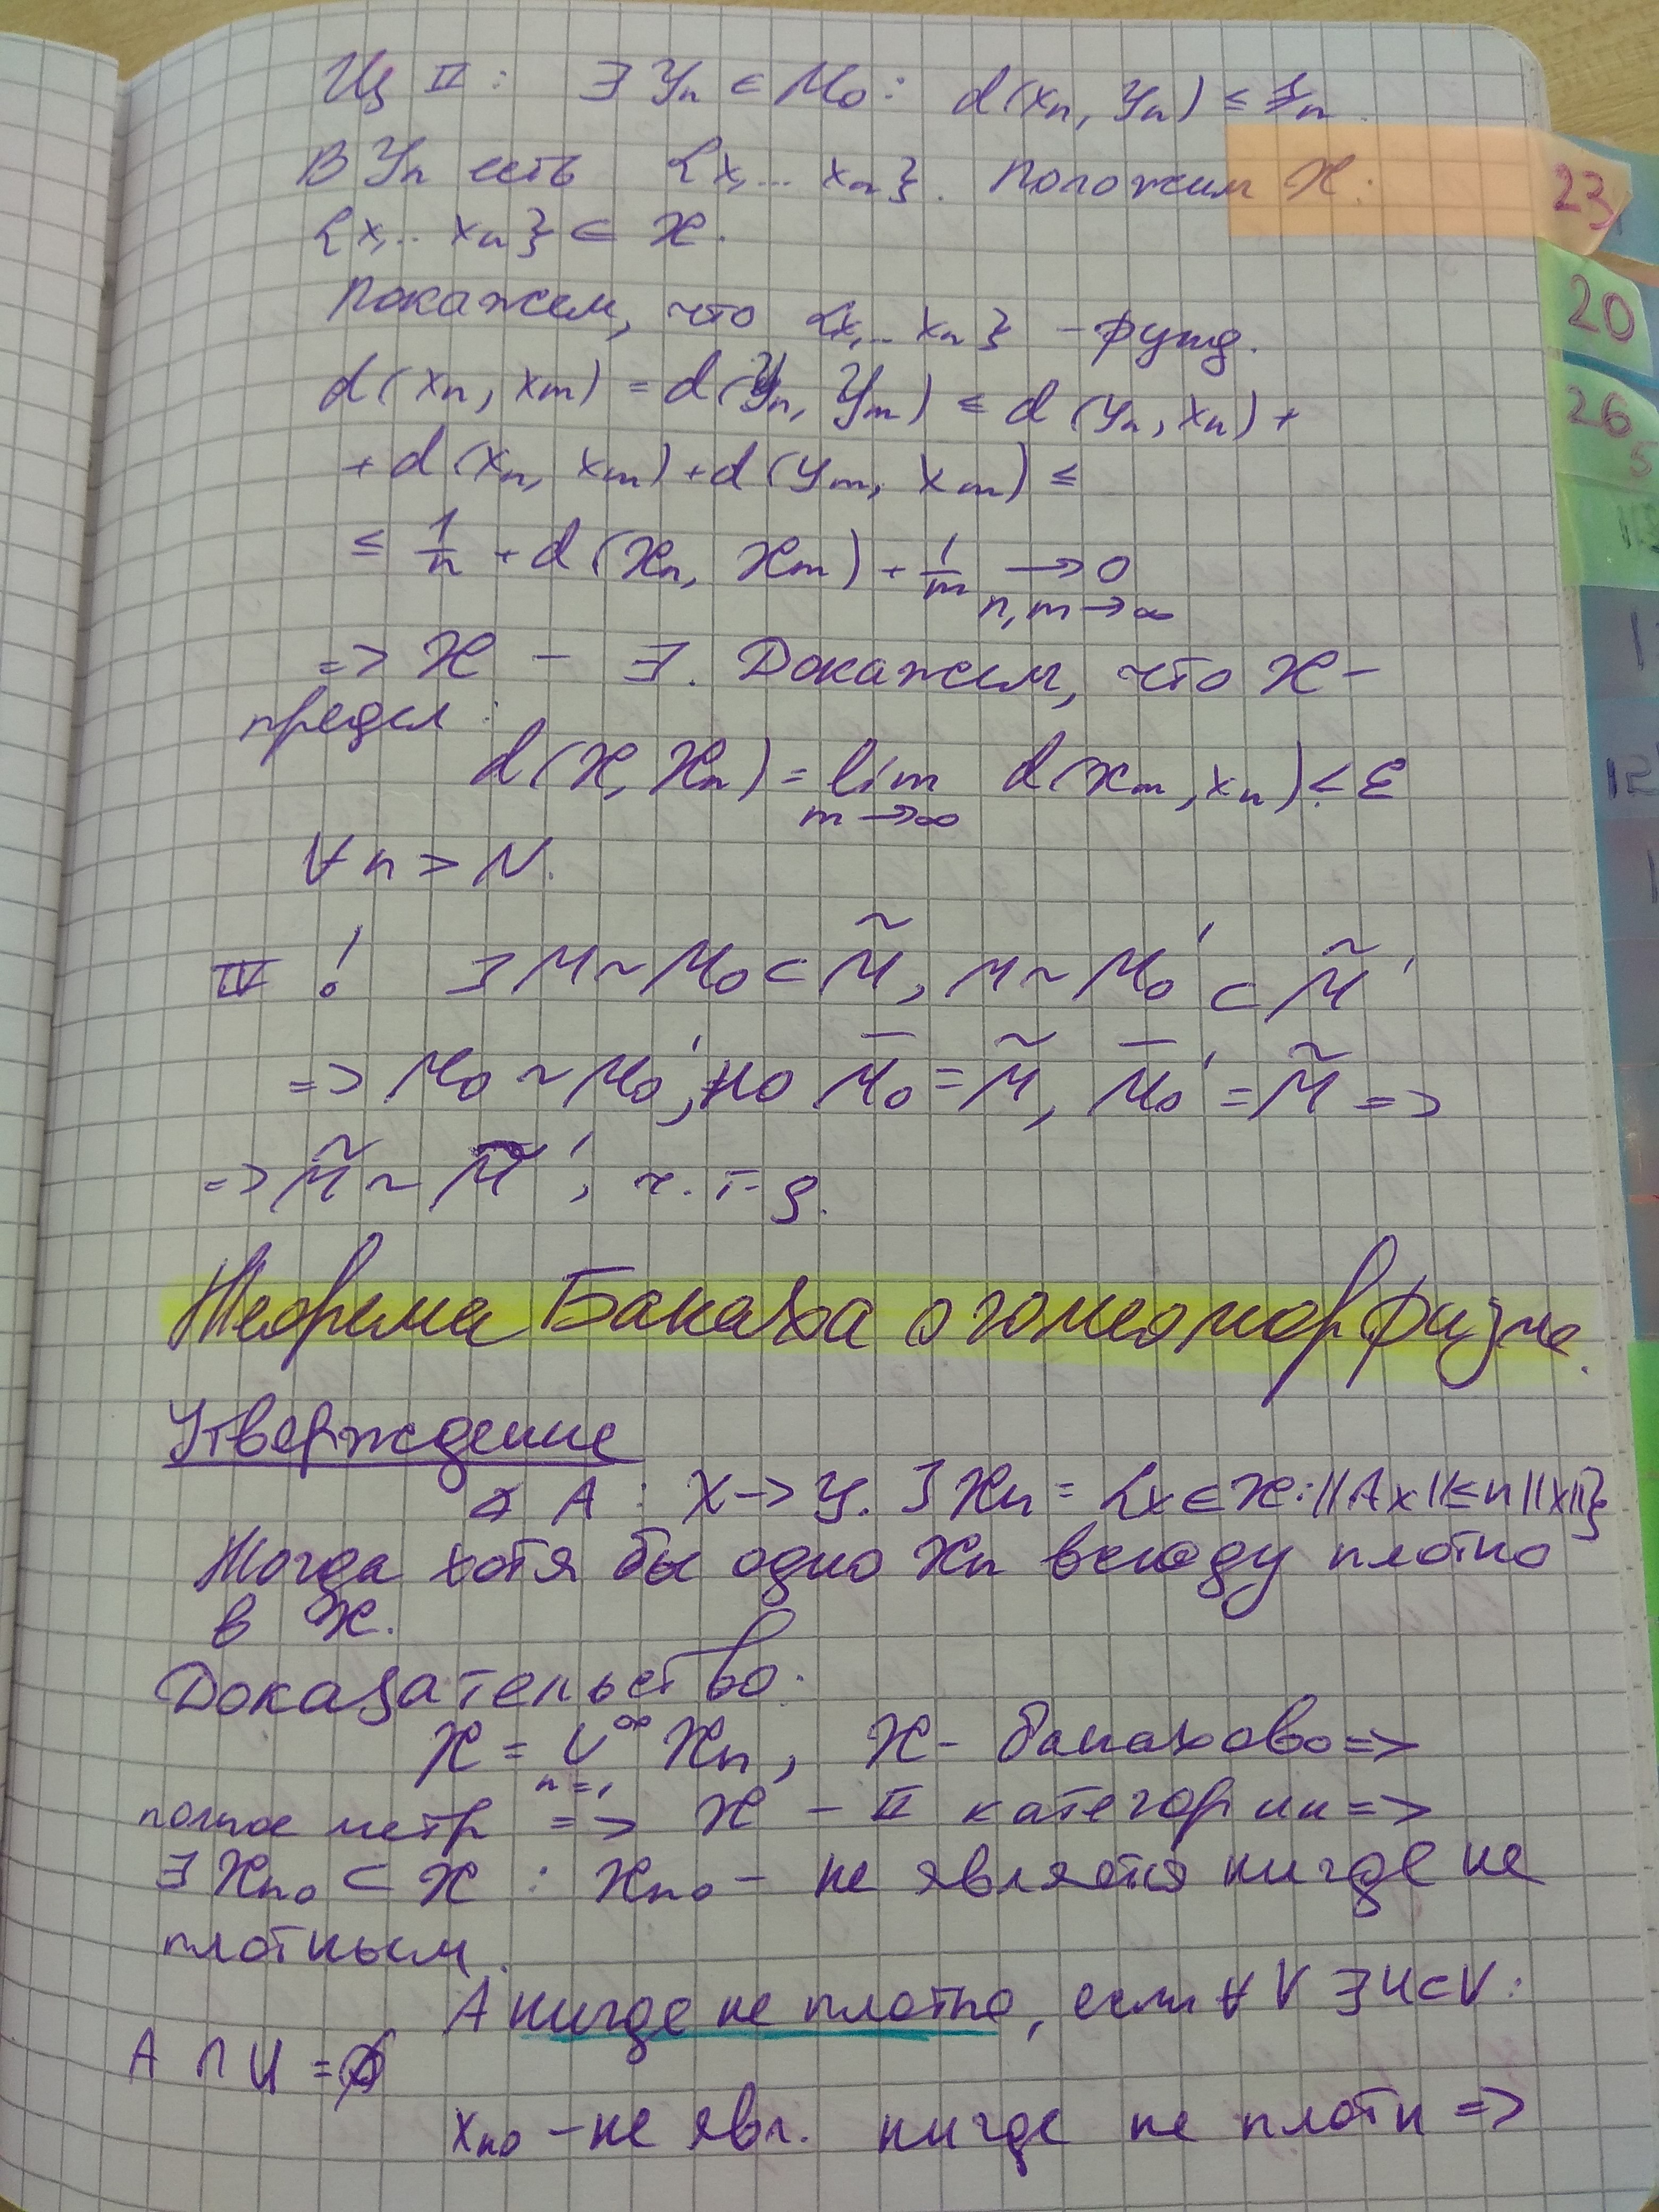 Из II: ∃ yₙ ∈ M₀: d(xₙ, yₙ) ≤ 1/n.
В yₙ есть {x,... xₙ}. Положим 𝒳:
{x,.. xₙ} ⊂ 𝒳.
Покажем, что {x,.. xₙ} – фунд.
d(xₙ, xₘ) = d(yₙ, yₘ) ≤ d(yₙ, xₙ) +
+ d(xₙ, xₘ) + d(yₘ, xₘ) ≤
≤ 1/n + d(𝒳ₙ, 𝒳ₘ) + 1/m → 0
n, m → ∞
=> 𝒳 – ∃. Докажем, что 𝒳 –
предел:
d(𝒳, 𝒳ₙ) = lim d(xₘ, xₙ) < ε
m → ∞
∀ n > N.
IV ! ∃ M ~ M₀ ⊂ M̃, M ~ M₀' ⊂ M̃'
=> M₀ ~ M₀', но M̄₀ = M̃, M̄₀' = M̃ =>
=> M̃ ~ M̃', ч.т.д.
Теорема Банаха о гомеоморфизме.
Утверждение
∢ A : X → Y. ∃ 𝒳ₙ = {x ∈ 𝒳: ||Ax|| ≤ n ||x||}
Тогда хотя бы одно 𝒳ₙ всюду плотно
в 𝒳.
Доказательство:
𝒳 = ∪ₙ₌₁^∞ 𝒳ₙ, 𝒳 – банахово =>
полное метр => 𝒳 – II категории =>
∃ 𝒳ₙ₀ ⊂ 𝒳 : 𝒳ₙ₀ – не является нигде не
плотным.
A нигде не плотно, если ∀ V ∃ U ⊂ V:
A ∩ U = ∅
xₙ₀ – не явл. нигде не плотн =>
23
20
26
5
12